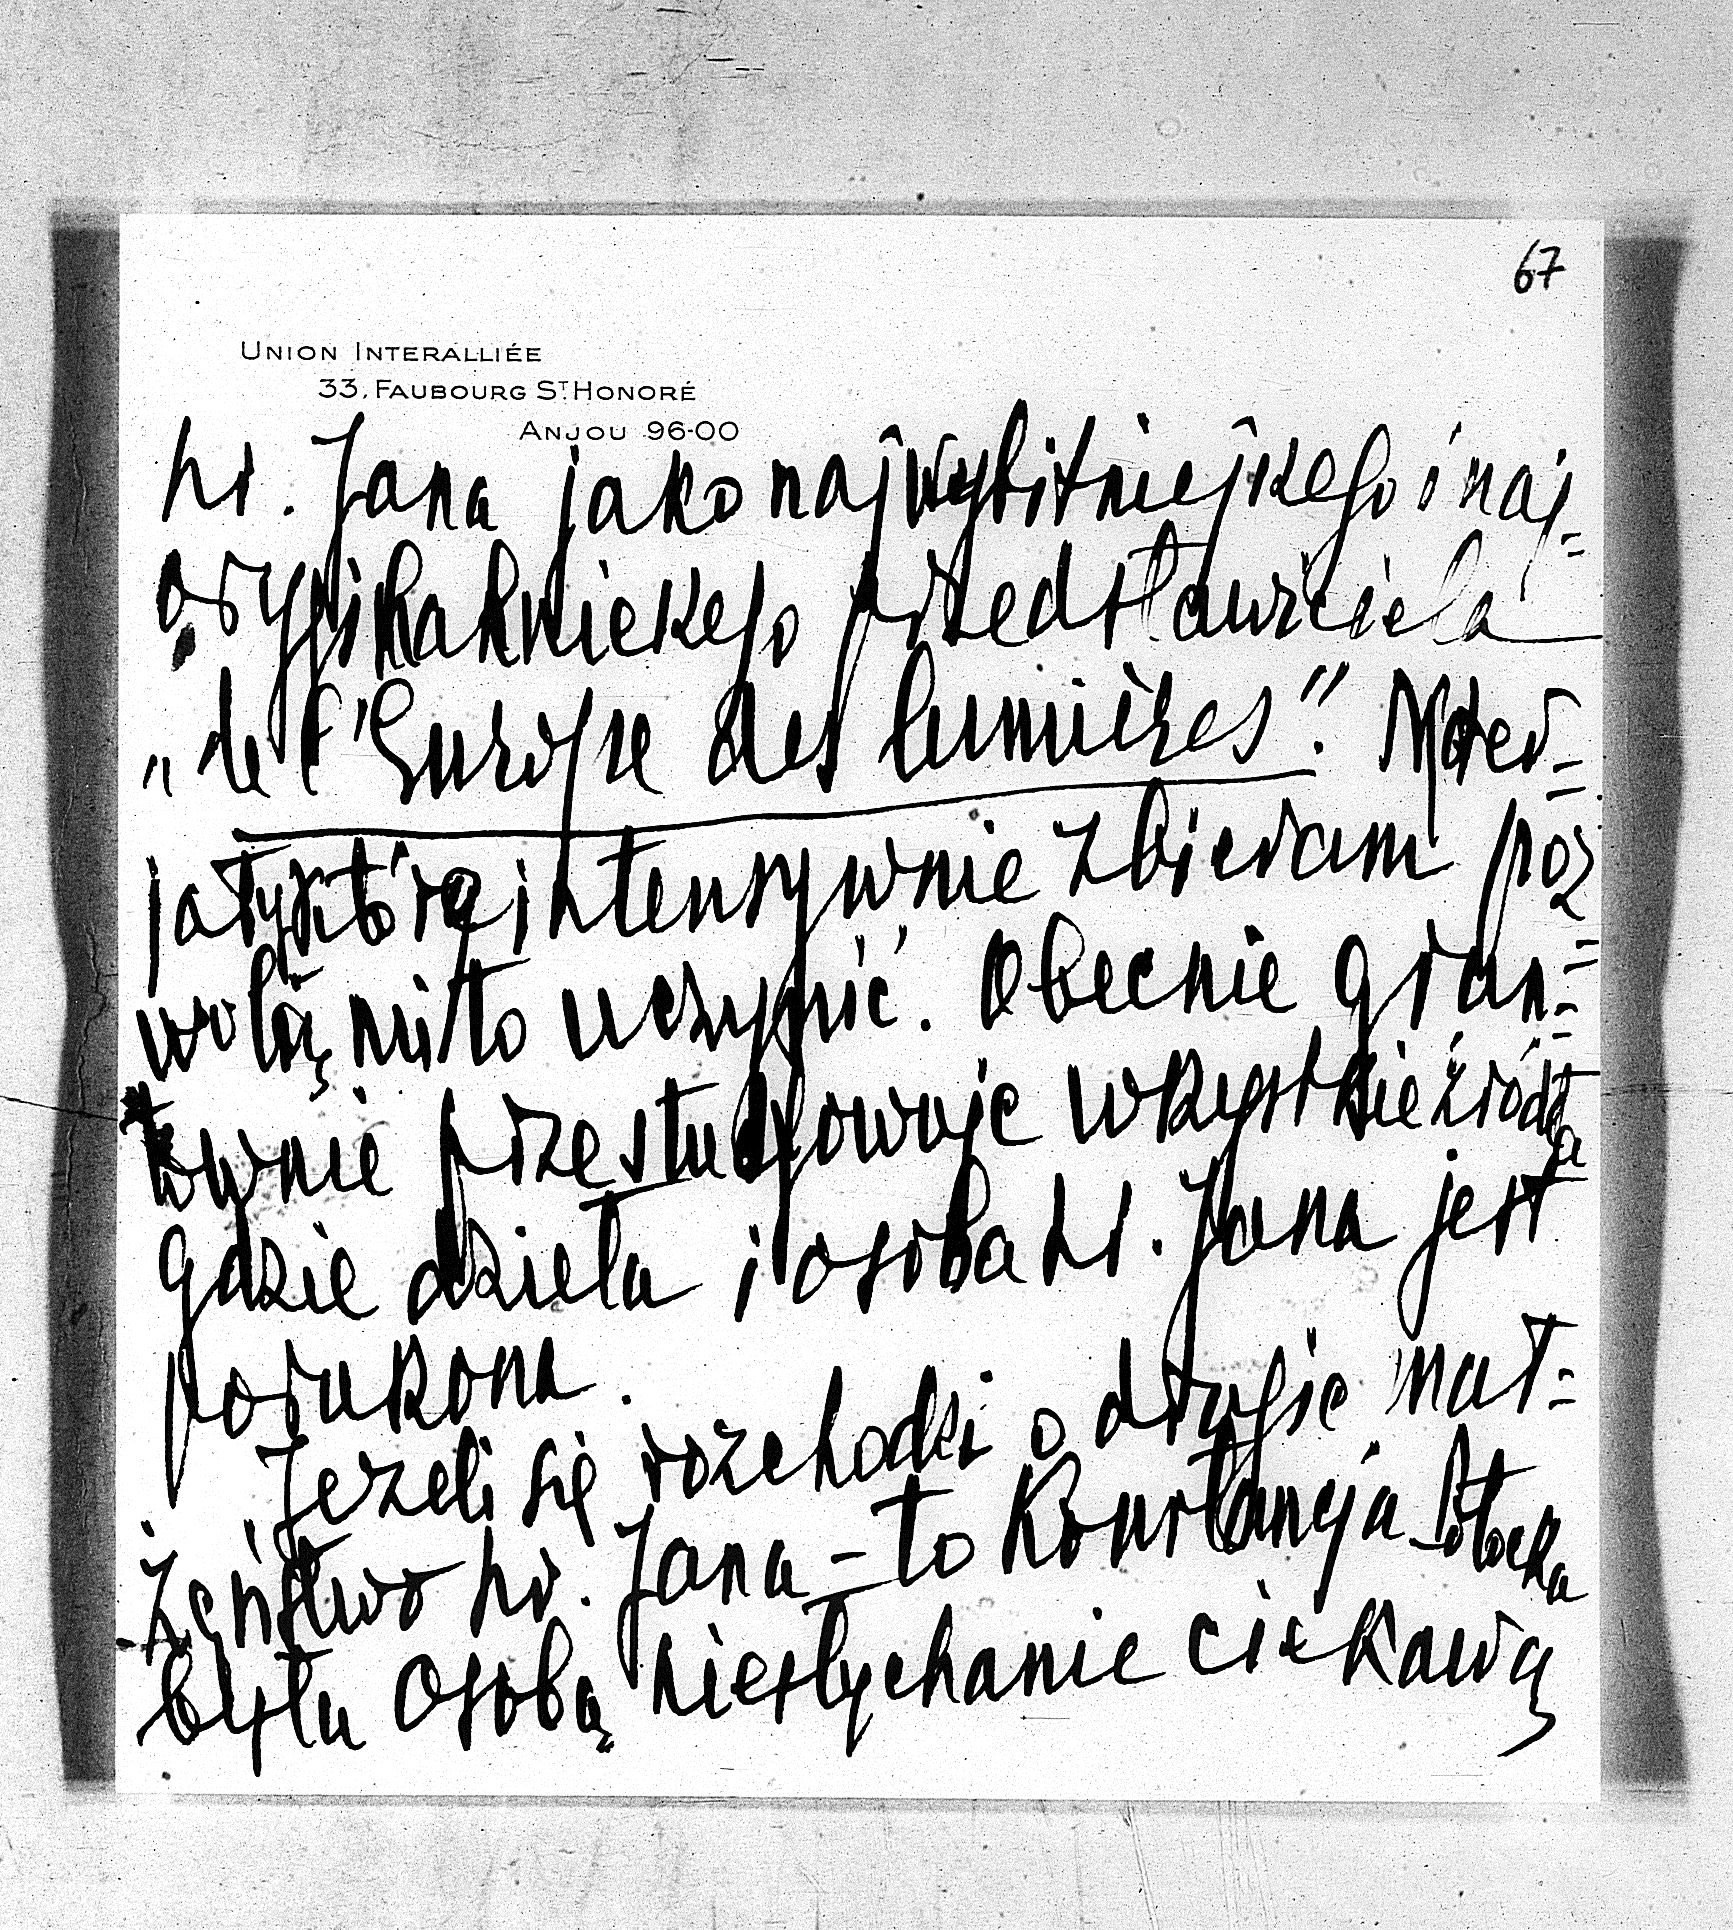 67
UNION INTERALLIÉE
33, FAUBOURG ST HONORÉ
ANJOU 96-00
hr. Jana jako najwybitniejszego i naj=
oryginalniejszego przedstawiciela
„de l'Europe des lumières". Mater=
jały które intensywnie zbieram poz
wolą mi to uczynić. Obecnie grun=
townie przestudjowuję wszystkie źródła
gdzie dzieła i osoba hr. Jana jest
poruszona.
Jeżeli się rozchodzi o drugie mał=
żeństwo hr. Jana – to Konstancja Potocka
była osobą niesłychanie ciekawą